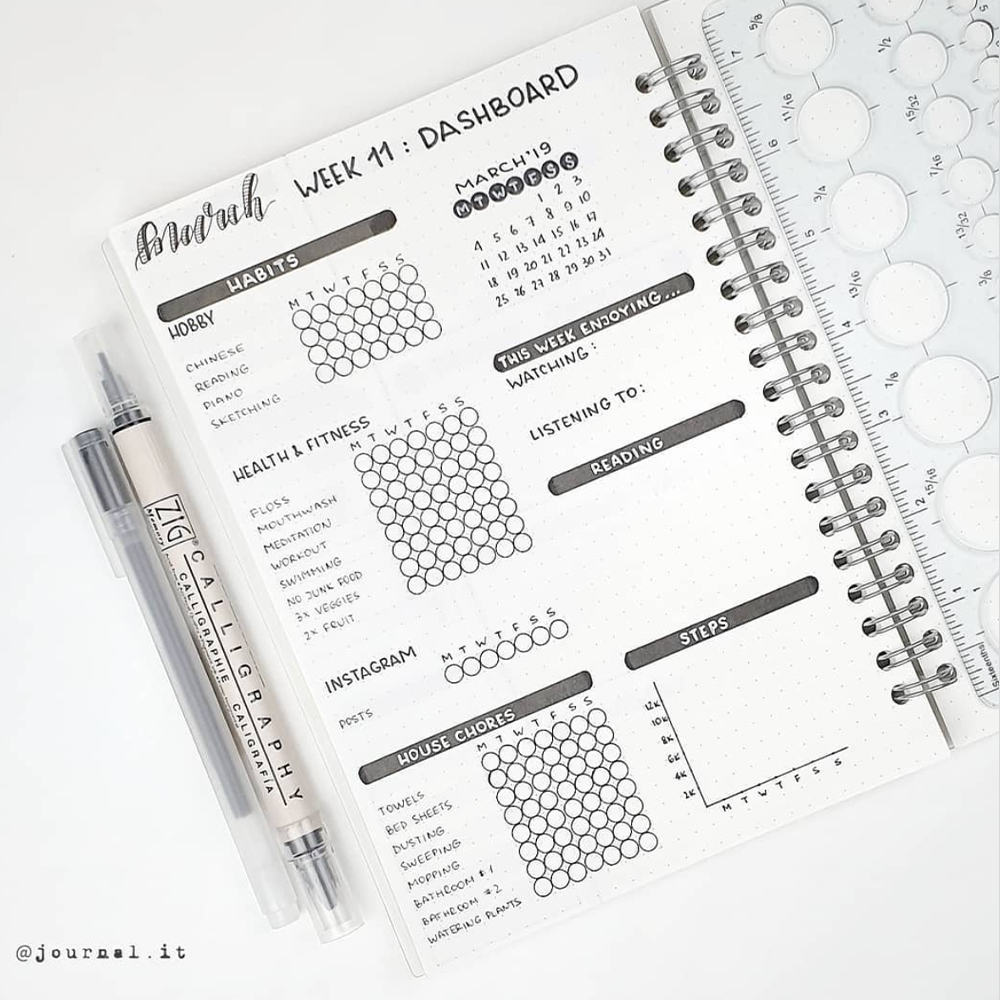 March
WEEK 11 : DASHBOARD
HABITS
HOBBY
M T W T F S S
CHINESE
READING
PIANO
SKETCHING
HEALTH & FITNESS
M T W T F S S
FLOSS
MOUTHWASH
MEDITATION
WORKOUT
SWIMMING
NO JUNK FOOD
3X VEGGIES
2X FRUIT
INSTAGRAM
M T W T F S S
POSTS
HOUSE CHORES
M T W T F S S
TOWELS
BED SHEETS
DUSTING
SWEEPING
MOPPING
BATHROOM #1
BATHROOM #2
WATERING PLANTS
MARCH'19
M T W T F S S
1 2 3
4 5 6 7 8 9 10
11 12 13 14 15 16 17
18 19 20 21 22 23 24
25 26 27 28 29 30 31
THIS WEEK ENJOYING...
WATCHING:
LISTENING TO:
READING
STEPS
12K
10K
8K
6K
4K
2K
M T W T F S S
ZIG®
Memory
CALLIGRAPHY
CALLIGRAPHIE CALIGRAFÍA
5/8
11/16
3/4
13/16
7/8
15/16
1
1/2
15/32
7/16
13/32
3/8
7
5
4
3
2
1
@journal.it